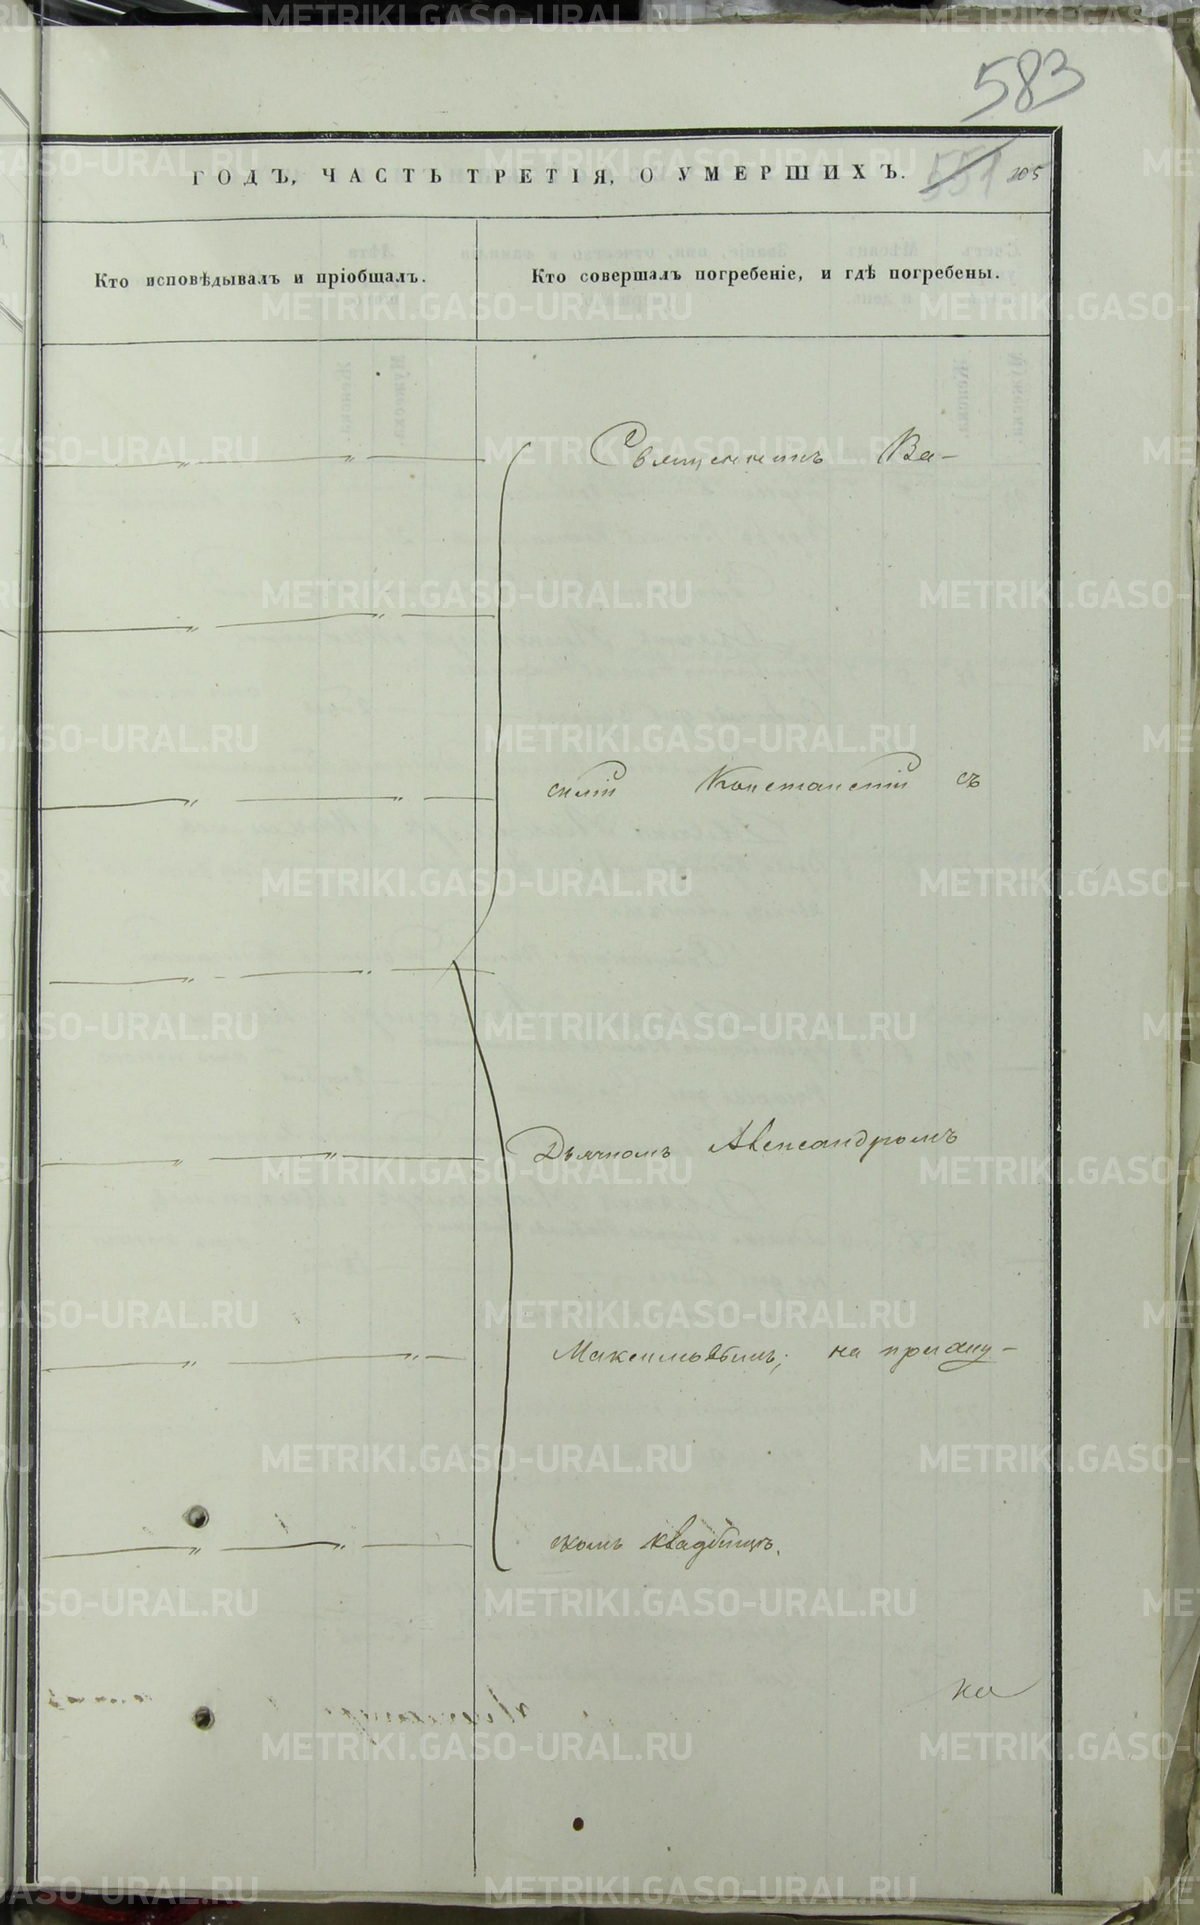 583
ГОДЪ, ЧАСТЬ ТРЕТІЯ, О УМЕРШИХЪ.
551 205
Кто исповѣдывалъ и пріобщалъ.
Кто совершалъ погребеніе, и гдѣ погребены.
Священникъ Ва-
силій Константинъ съ
Дьячкомъ Александромъ
Максимовымъ; на
скомъ кладбищѣ.
на
METRIKI.GASO-URAL.RU